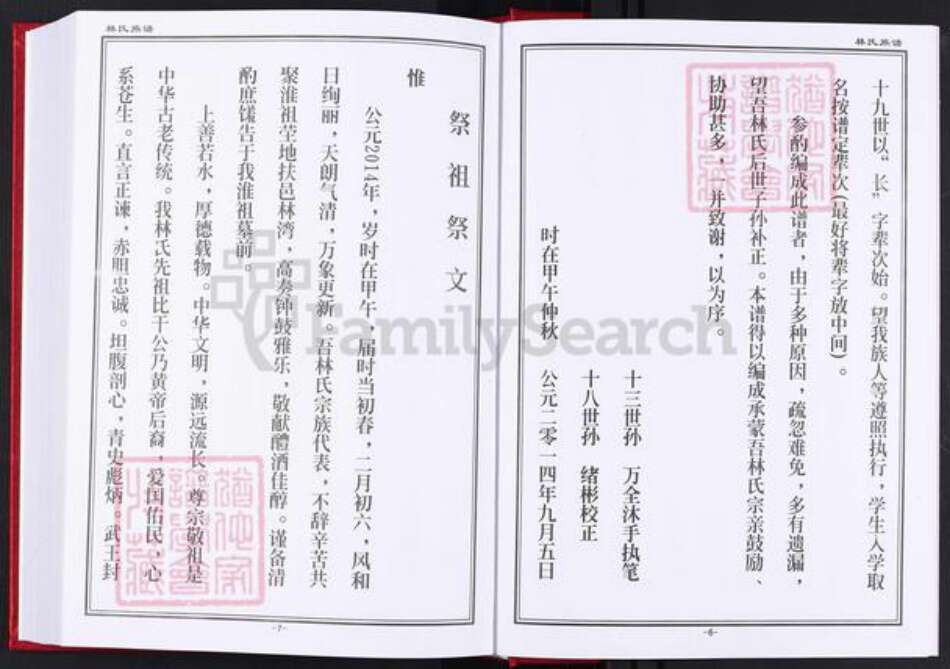 林氏族谱
十九世以“长”字辈次始。望我族人等遵照执行，学生入学取
名按谱定辈次(最好将辈字放中间)。
参酌编成此谱者，由于多种原因，疏忽难免，多有遗漏，
望吾林氏后世子孙补正。本谱得以编成承蒙吾林氏宗亲鼓励、
协助甚多，一并致谢，以为序。
十三世孙 万全沐手执笔
十八世孙 绪彬校正
时在甲午仲秋 公元二零一四年九月五日
-6-
林氏族谱
祭祖祭文
惟
公元2014年，岁时在甲午，届时当初春，二月初六，风和
日绚丽，天朗气清，万象更新。吾林氏宗族代表，不辞辛苦共
聚淮祖茔地扶邑林湾，高奏钟鼓雅乐，敬献醴酒佳醇。谨备清
酌庶馐告于我淮祖墓前。
上善若水，厚德载物。中华文明，源远流长。尊宗敬祖是
中华古老传统。我林氏先祖比干公乃黄帝后裔，爱国佑民，心
系苍生。直言正谏，赤胆忠诚。坦腹剖心，青史彪炳。武王封
-7-
FamilySearch